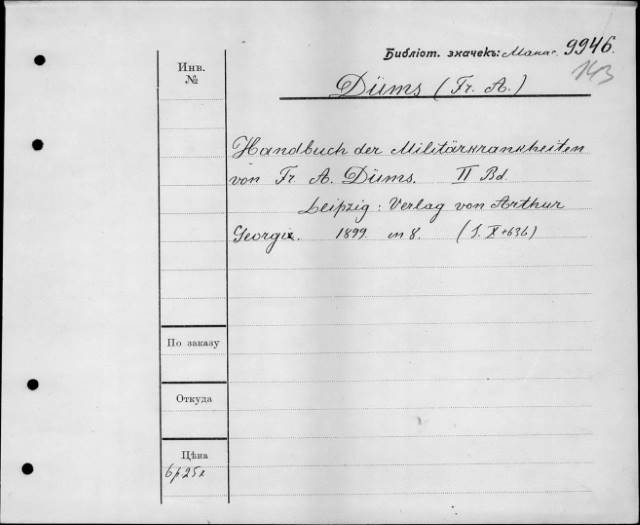 Библіот. значекъ: Макс. 9946.
143
Инв.
№
Düms (Fr. A.)
Handbuch der Militärkrankheiten
von Fr. A. Düms. II Bd
Leipzig: Verlag von Arthur
Georgi. 1899. in 8. (S. X+636)
По заказу
Откуда
Цѣна
6р25к